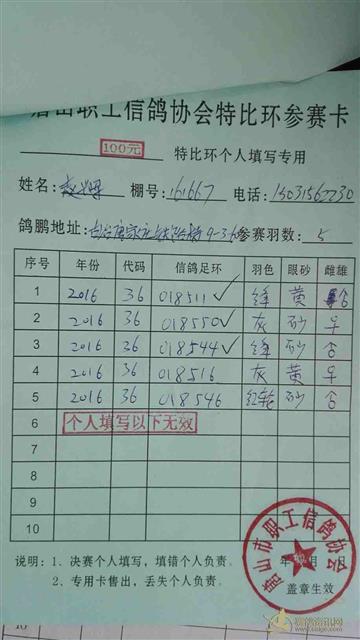 唐山职工信鸽协会特比环参赛卡
100元 特比环个人填写专用
姓名: 棚号:161667 电话:15031562230
鸽鹏地址: 参赛羽数:5
序号 年份 代码 信鸽足环 羽色 眼砂 雌雄
1 2016 36 018511 ✓ 绛 黄
2 2016 36 018550 ✓ 灰 砂
3 2016 36 018544 ✓ 绛 砂
4 2016 36 018516 灰 黄
5 2016 36 018546 红轮 砂
6 个人填写以下无效
7
8
9
10
说明:1、决赛个人填写,填错个人负责。 年 月 日
2、专用卡售出,丢失个人负责。 盖章生效
唐山市职工信鸽协会
10